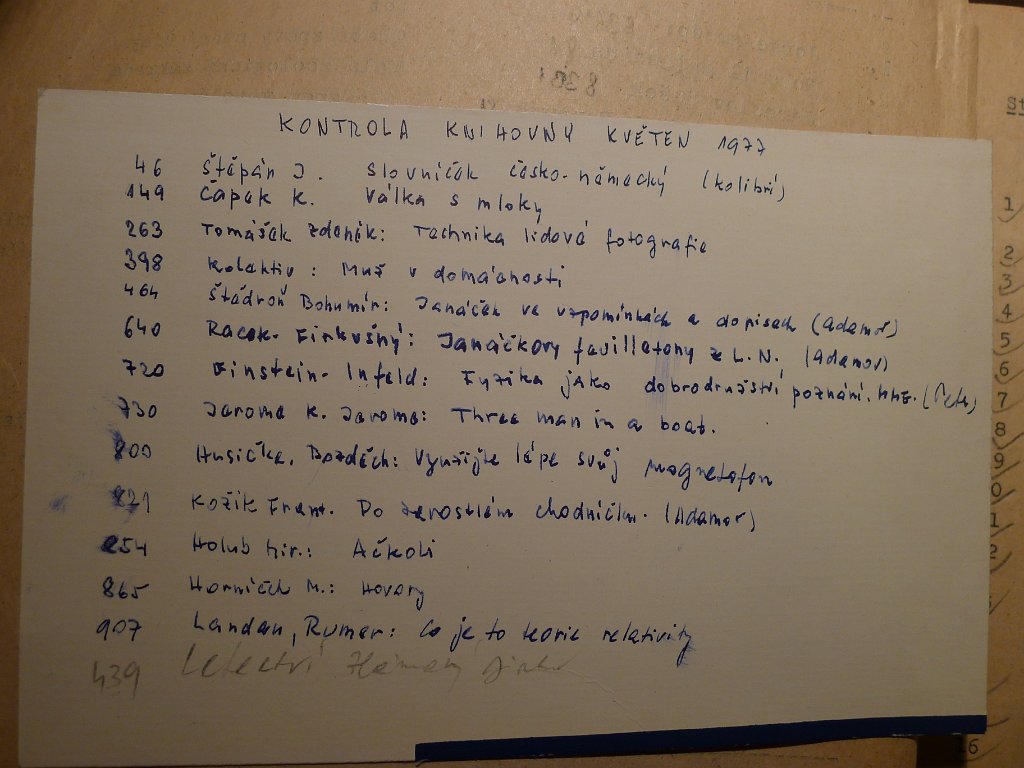 KONTROLA KNIHOVNY KVĚTEN 1977
46 Štěpán J. Slovníček česko-německý (kolibří)
149 Čapek K. Válka s mloky
263 Tomášek Zdeněk: Technika lidové fotografie
398 Kolektiv: Muž v domácnosti
464 Štědroň Bohumír: Janáček ve vzpomínkách a dopisech (Adamov)
640 Racek-Firkušný: Janáčkovy feuilletony z L.N. (Adamov)
720 Einstein-Infeld: Fyzika jako dobrodružství poznání. (Petr)
730 Jerome K. Jerome: Three man in a boat.
800 Husička, Bozděch: Využijte lépe svůj magnetofon
821 Kožík Frant. Po zarostlém chodníčku. (Adamov)
854 Holub Mir.: Ačkoli
865 Horníček M.: Hovory
907 Landau, Rumer: Co je to teorie relativity
439 Letectví
8
1
2
3
4
5
6
7
8
9
0
1
2
16